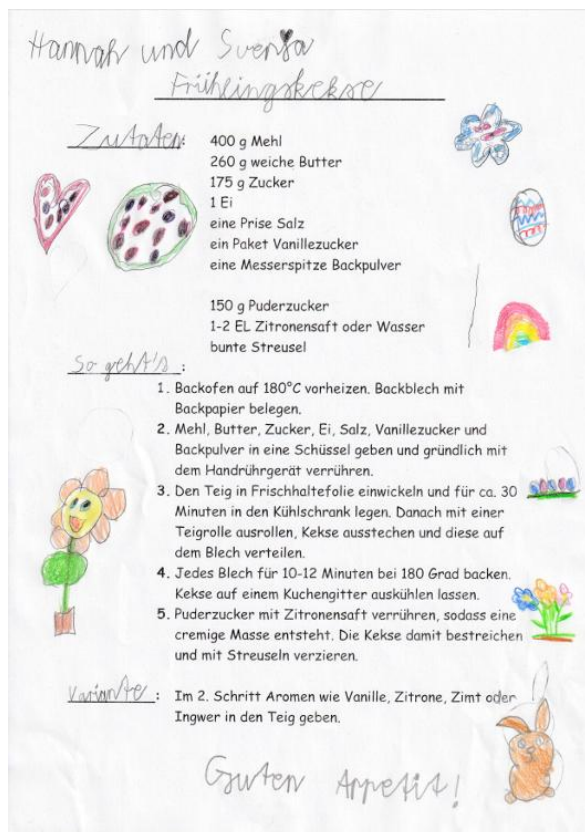 Hannah und Svenja
Frühlingskekse
Zutaten:
400 g Mehl
260 g weiche Butter
175 g Zucker
1 Ei
eine Prise Salz
ein Paket Vanillezucker
eine Messerspitze Backpulver
150 g Puderzucker
1-2 EL Zitronensaft oder Wasser
bunte Streusel
So geht's :
1. Backofen auf 180°C vorheizen. Backblech mit
Backpapier belegen.
2. Mehl, Butter, Zucker, Ei, Salz, Vanillezucker und
Backpulver in eine Schüssel geben und gründlich mit
dem Handrührgerät verrühren.
3. Den Teig in Frischhaltefolie einwickeln und für ca. 30
Minuten in den Kühlschrank legen. Danach mit einer
Teigrolle ausrollen, Kekse ausstechen und diese auf
dem Blech verteilen.
4. Jedes Blech für 10-12 Minuten bei 180 Grad backen.
Kekse auf einem Kuchengitter auskühlen lassen.
5. Puderzucker mit Zitronensaft verrühren, sodass eine
cremige Masse entsteht. Die Kekse damit bestreichen
und mit Streuseln verzieren.
Variante : Im 2. Schritt Aromen wie Vanille, Zitrone, Zimt oder
Ingwer in den Teig geben.
Guten Appetit!